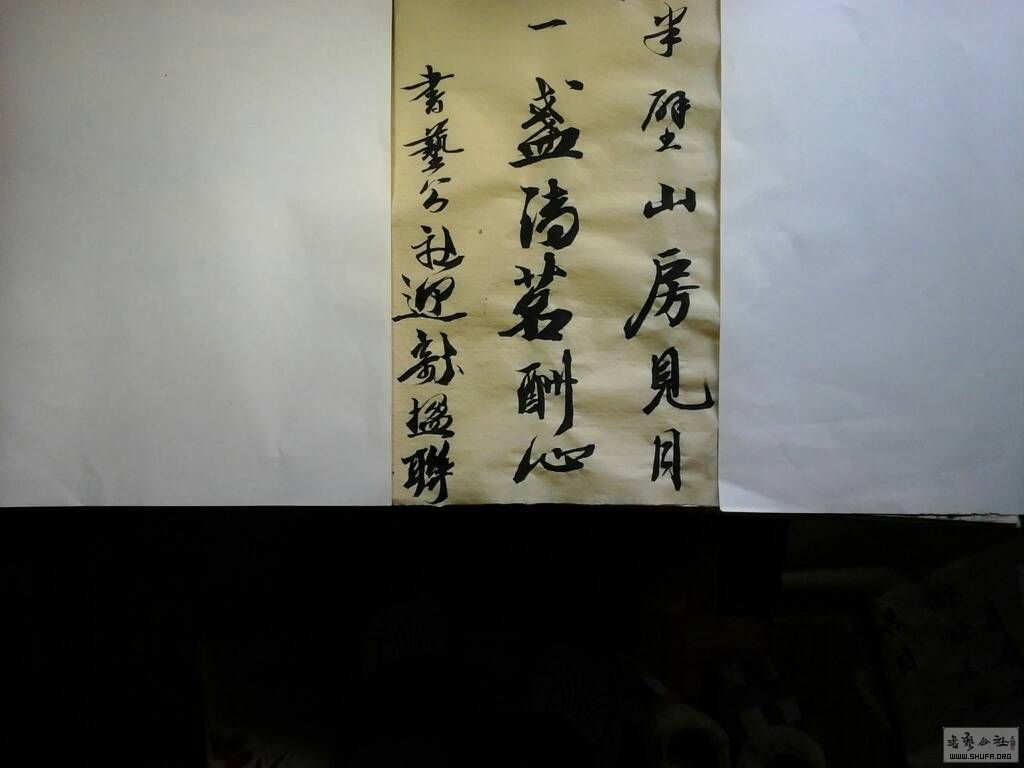 半壁山房見月
一盞清茗酬心
書藝公社迎新楹聯
書藝公社
WWW.SHUFA.ORG